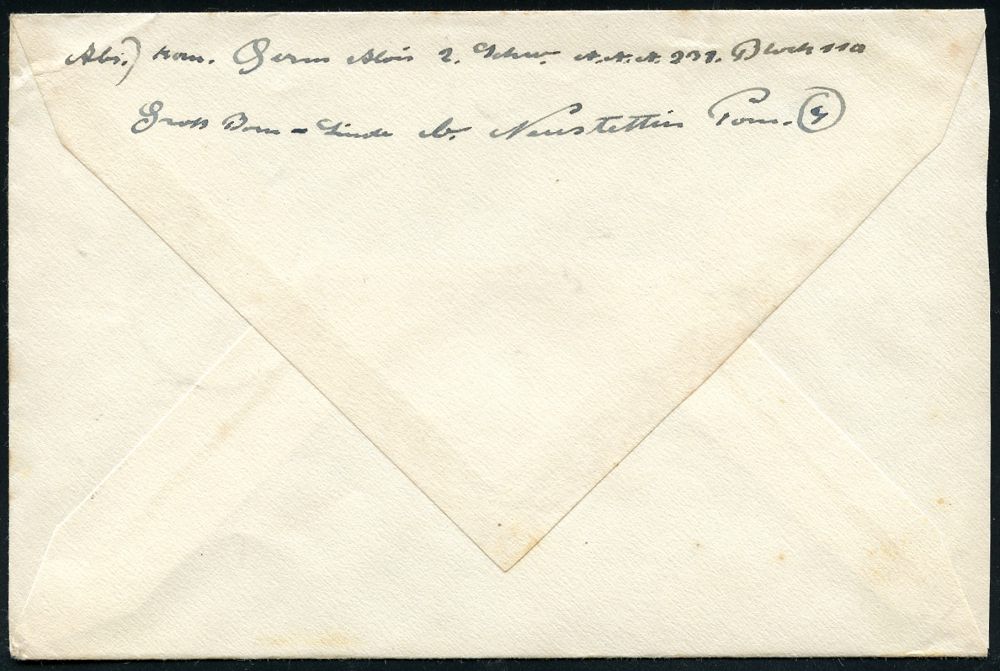 Abs.) Kan. Germ Alois 2. Schw. A.A.A. 231. Block 11a
Groß Born - Linde b. Neustettin Pom. (4)